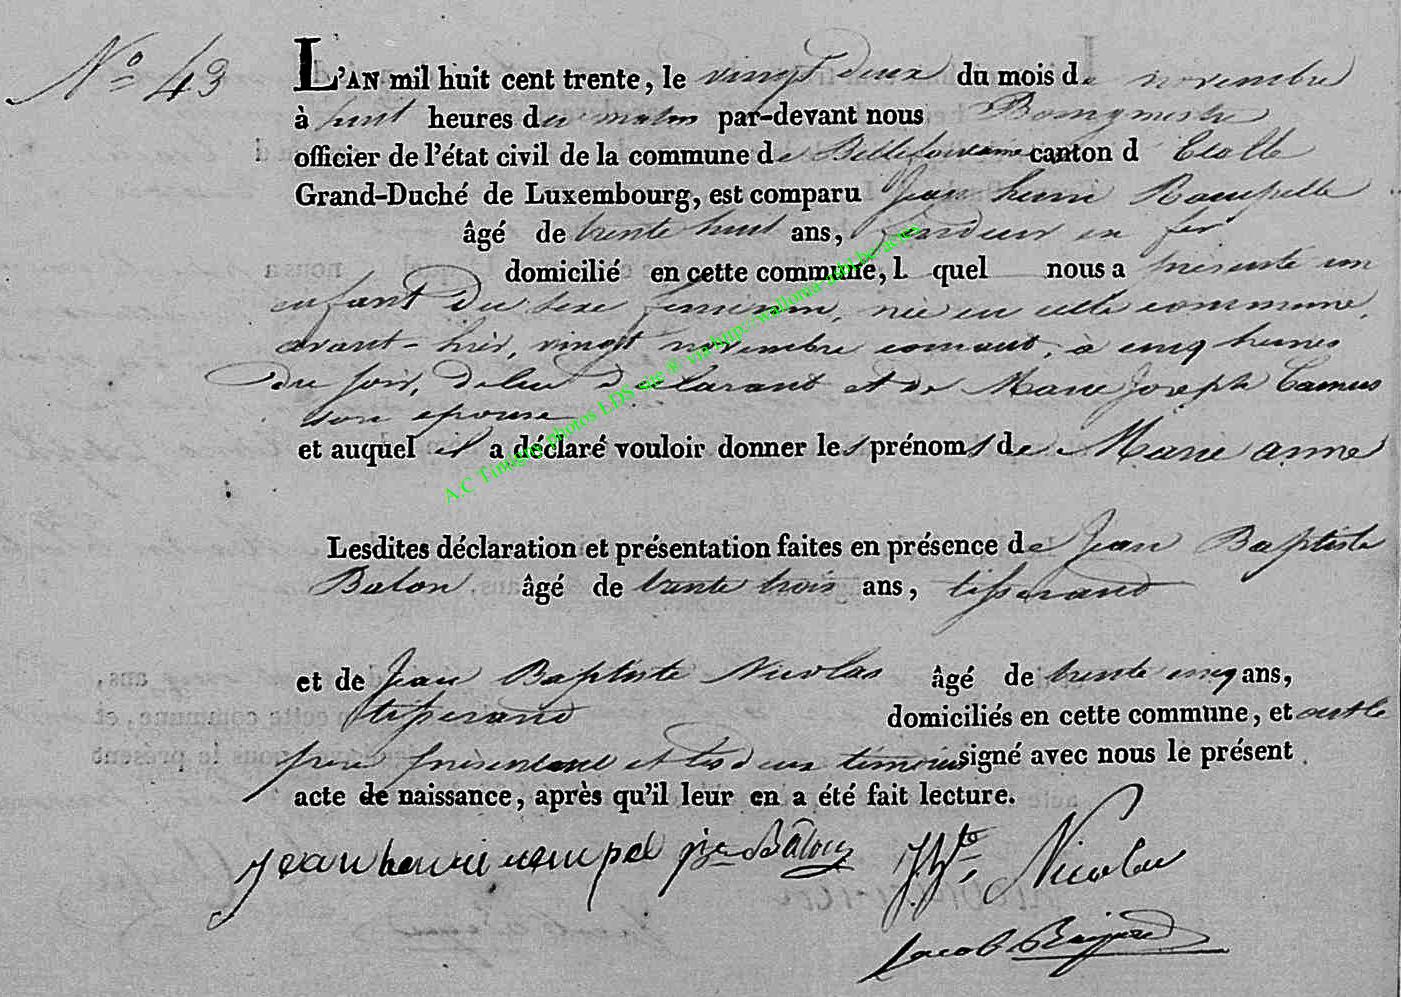 N° 43
L'AN mil huit cent trente, le vingt deux du mois de novembre
à huit heures du matin par-devant nous Bourgmestre
officier de l'état civil de la commune de Bellefontaine canton d' Etalle
Grand-Duché de Luxembourg, est comparu Jean henri Rampelle
âgé de trente huit ans, fondeur en fer
domicilié en cette commune, l quel nous a présenté un
enfant du sexe feminin, née en cette commune,
avant-hier, vingt novembre courant, à cinq heures
du soir, de lui declarant et de Marie Joseph Camus
son epouse
et auquel il a déclaré vouloir donner les prénoms de Marie anne
Lesdites déclaration et présentation faites en présence de Jean Baptiste
Balon âgé de trente trois ans, tisserand
et de Jean Baptiste Nicolas âgé de trente cinq ans,
tisserand domiciliés en cette commune, et ont le
pere présentant et les deux témoins signé avec nous le présent
acte de naissance, après qu'il leur en a été fait lecture.
jean henri rempel Balon J. Bte Nicolas
Jacob
A.C Tintigny photos LDS site ® via http://walloma-asbl.be/actes